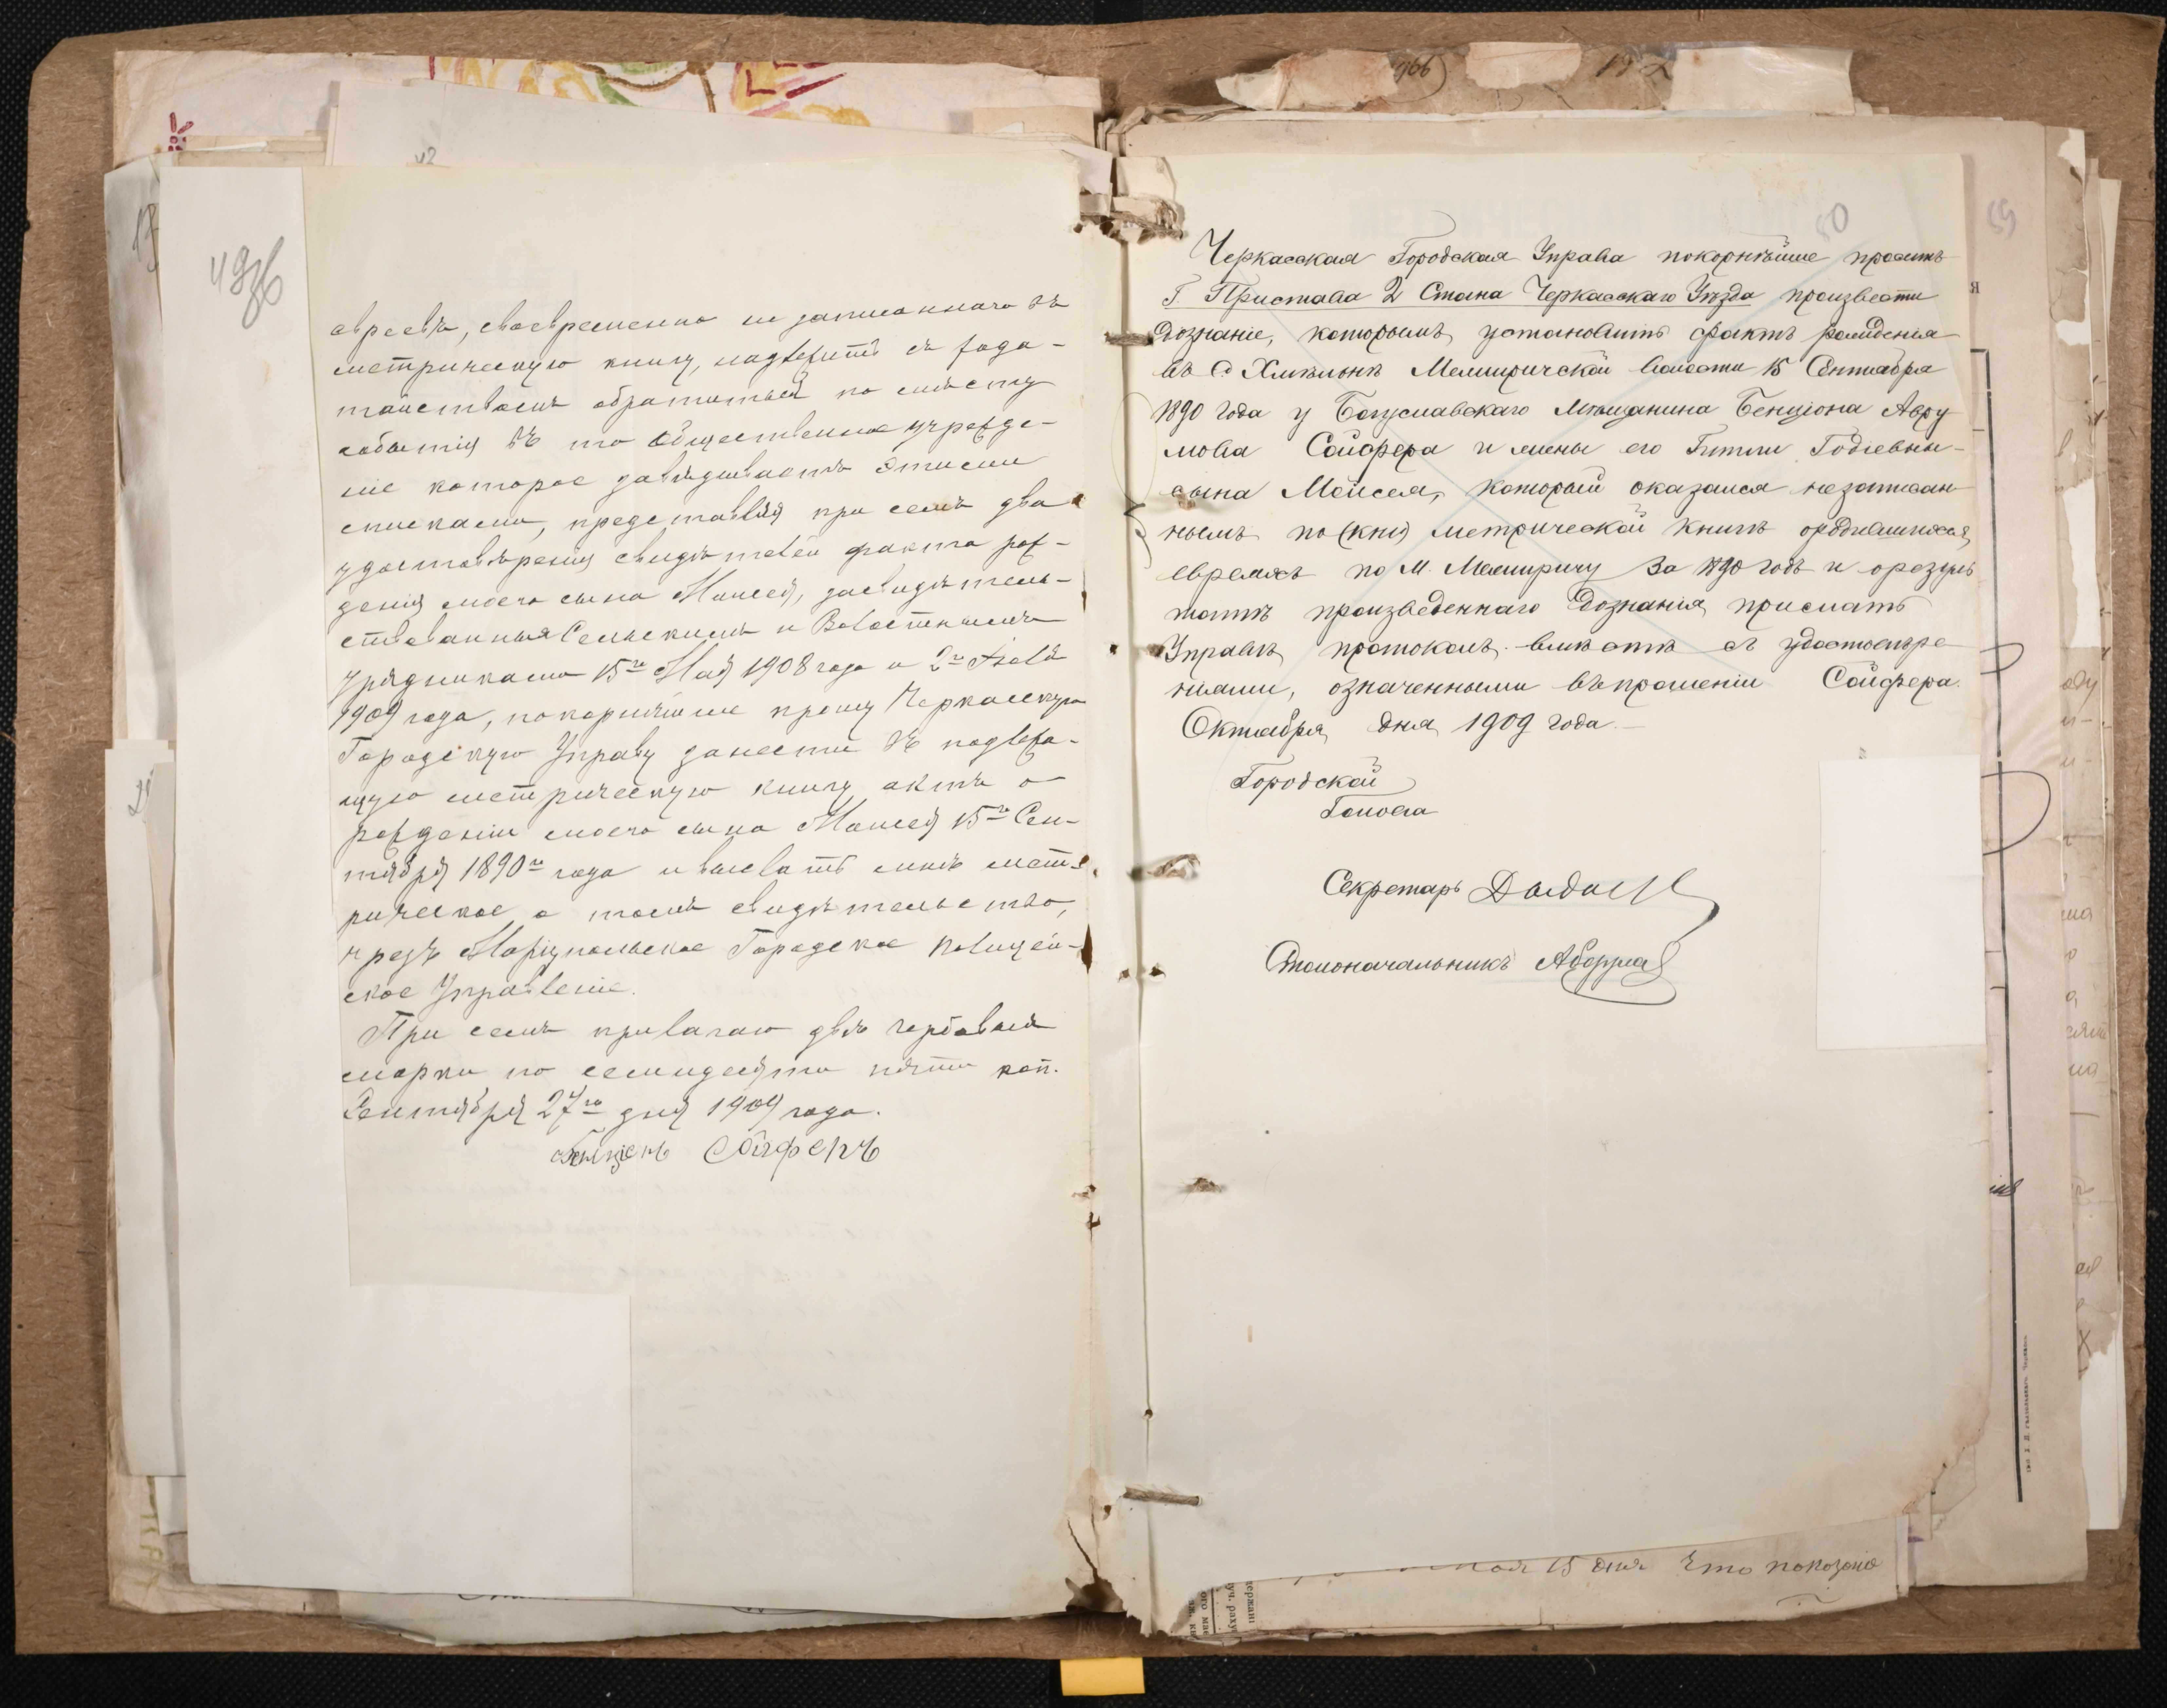 49об
евреевъ, своевременно не записаннаго въ
метрическую книгу, надлежитъ съ хода-
тайствомъ обратиться по мѣсту
событія въ то общественное учрежде-
ніе которое завѣдываетъ этими
списками, представляя при семъ два
удостовѣренія свидѣтелей факта рож-
денія моего сына Моисея, засвидѣтель-
ствованныя Сельскимъ и Волостнымъ
урядниками 15го Мая 1908 года и 2го Іюля
1909 года, покорнѣйше прошу Черкасскую
Городскую Управу занести въ подлежа-
щую метрическую книгу актъ о
рожденіи моего сына Моисея 15го Сен-
тября 1890го года и выслать мнѣ мет-
рическое о томъ свидѣтельство,
чрезъ Маріупольское Городское Полицей-
ское Управленіе.
При семъ прилагаю двѣ гербовыя
марки по семидесяти пяти коп.
Сентября 27го дня 1909 года.
Бенціонъ Сойферъ
50
Черкасская Городская Управа покорнѣйше проситъ
Г. Пристава 2 Стана Черкасскаго Уѣзда произвести
дознаніе, которымъ установить фактъ рожденія
въ с Хмѣльнѣ Межиричской волости 15 Сентября
1890 года у Богуславскаго Мѣщанина Бенціона Авру
мова Сойфера и жены его Гитли Годіевны-
сына Мойсея, который оказался незаписан-
нымъ по (кни) метрической книгѣ о родившихся
евреяхъ по М. Межиричу за 1890 годъ и о резуль
татѣ произведеннаго дознанія прислать
Управѣ протоколъ вмѣстѣ съ удостовѣре
ніями, означенными въ прошеніи Сойфера.
Октября дня 1909 года.
Городской
Голова
Секретарь
Столоначальникъ
15 дня Что показано